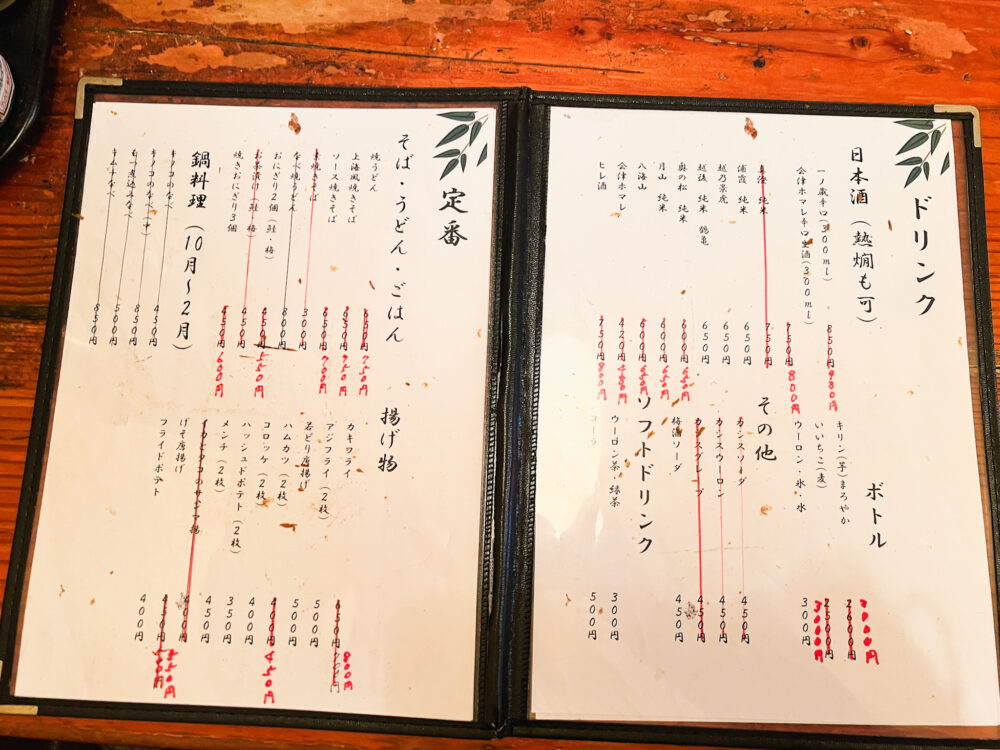 ドリンク
日本酒(熱燗も可)
一ノ蔵辛口(300ml) 850円 930円
会津ホマレ辛口生酒(300ml) 750円 800円
純米 750円
浦霞 純米 650円
越乃景虎 650円
越後 純米 鶴亀 650円
奥の松 純米 600円 650円
月山 純米 600円 650円
八海山 600円 650円
会津ホマレ 420円 480円
ヒレ酒 750円 800円
ボトル
キリン(芋)まろやか 2600円 3000円
いいちこ(麦) 2500円 3000円
ウーロン・氷・水 300円
その他
カシスソーダ 450円
カシスウーロン 450円
カシスグレープ 450円
梅酒ソーダ 450円
ソフトドリンク
ウーロン茶・緑茶 300円
コーラ 500円
定番
そば・うどん・ごはん
焼うどん 650円 750円
上海風焼きそば 650円 950円
ソース焼きそば 650円 700円
焼きそば 300円
なべ焼うどん 800円
おにぎり2個(鮭・梅) 450円 550円
お茶漬け(鮭・梅) 450円
焼きおにぎり3個 450円 600円
鍋料理(10月〜2月)
キノコのなべ(中) 450円
850円
もつ煮込みなべ 500円
キムチなべ 850円
揚げ物
カキフライ 650円 800円
アジフライ(2枚) 500円
若どり唐揚げ 500円
ハムカツ(2枚) 400円 450円
コロッケ(2枚) 400円
ハッシュドポテト(2枚) 350円
メンチ(2枚) 450円
400円
げそ唐揚げ 450円 550円
フライドポテト 400円